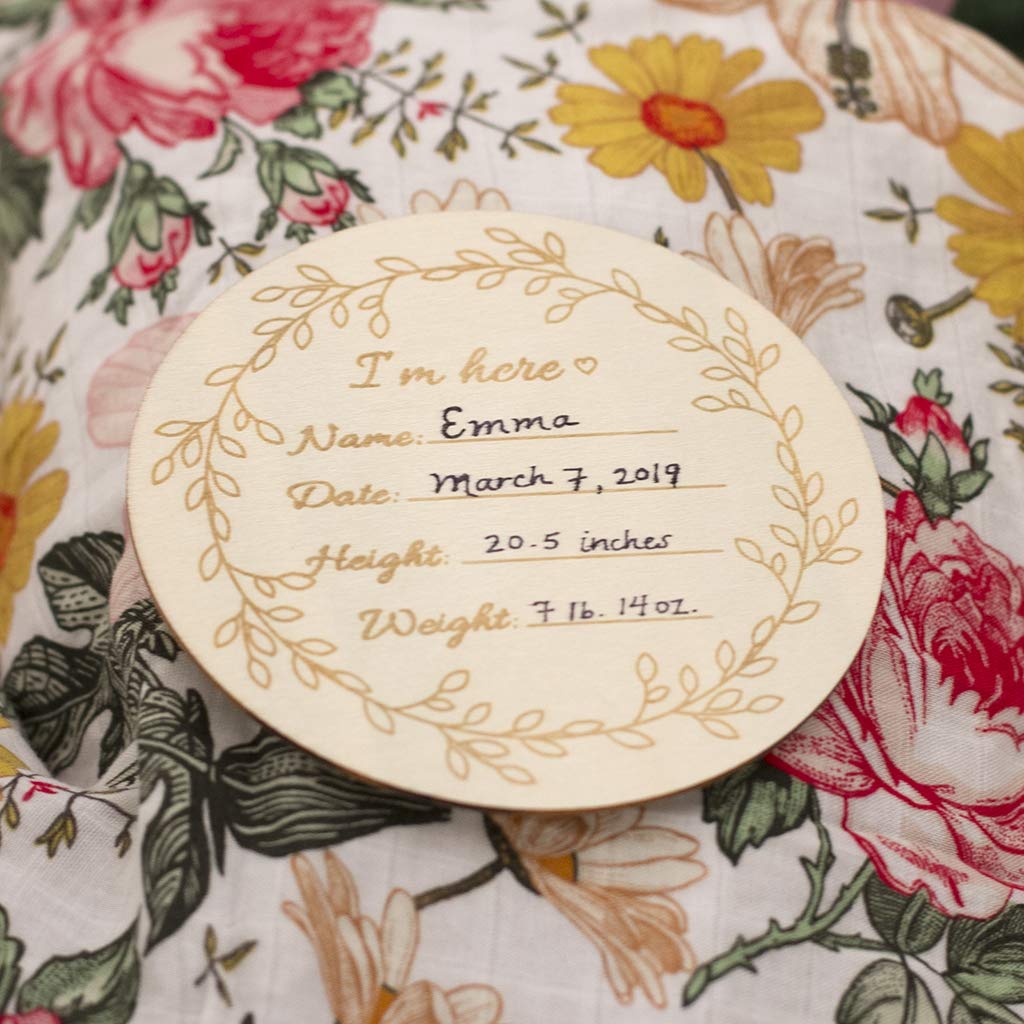 I'm here ♡
Name: Emma
Date: March 7, 2019
Height: 20.5 inches
Weight: 7 lb. 14 oz.